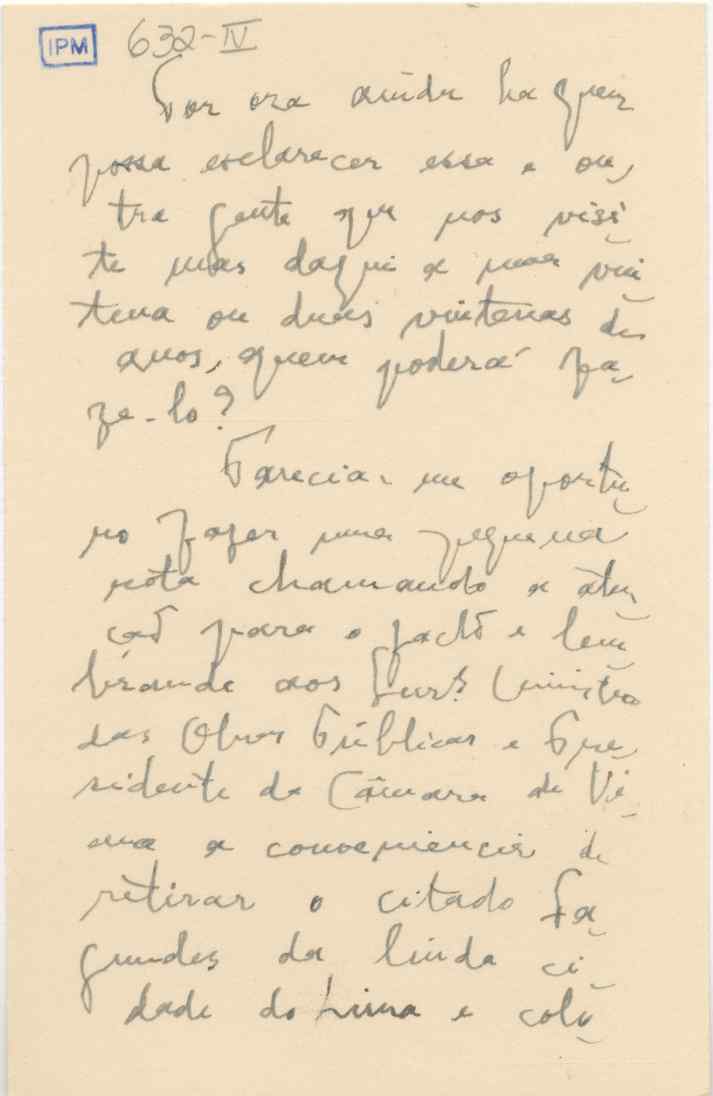 IPM 632-IV
Por ora ainda ha quem
possa esclarecer essa e ou-
tra gente que nos visi-
te mas daqui a uma vin-
tena ou duas vintenas de
anos, quem poderá fa-
ze-lo?
Parecia-me oportu-
no fazer uma pequena
nota chamando a aten-
ção para o facto e lem-
brando aos Snrs. Ministro
das Obras Públicas e Pre-
sidente da Câmara de Vi-
ana a conveniencia de
retirar o citado Fa-
gundes da linda ci-
dade do Lima e colo-